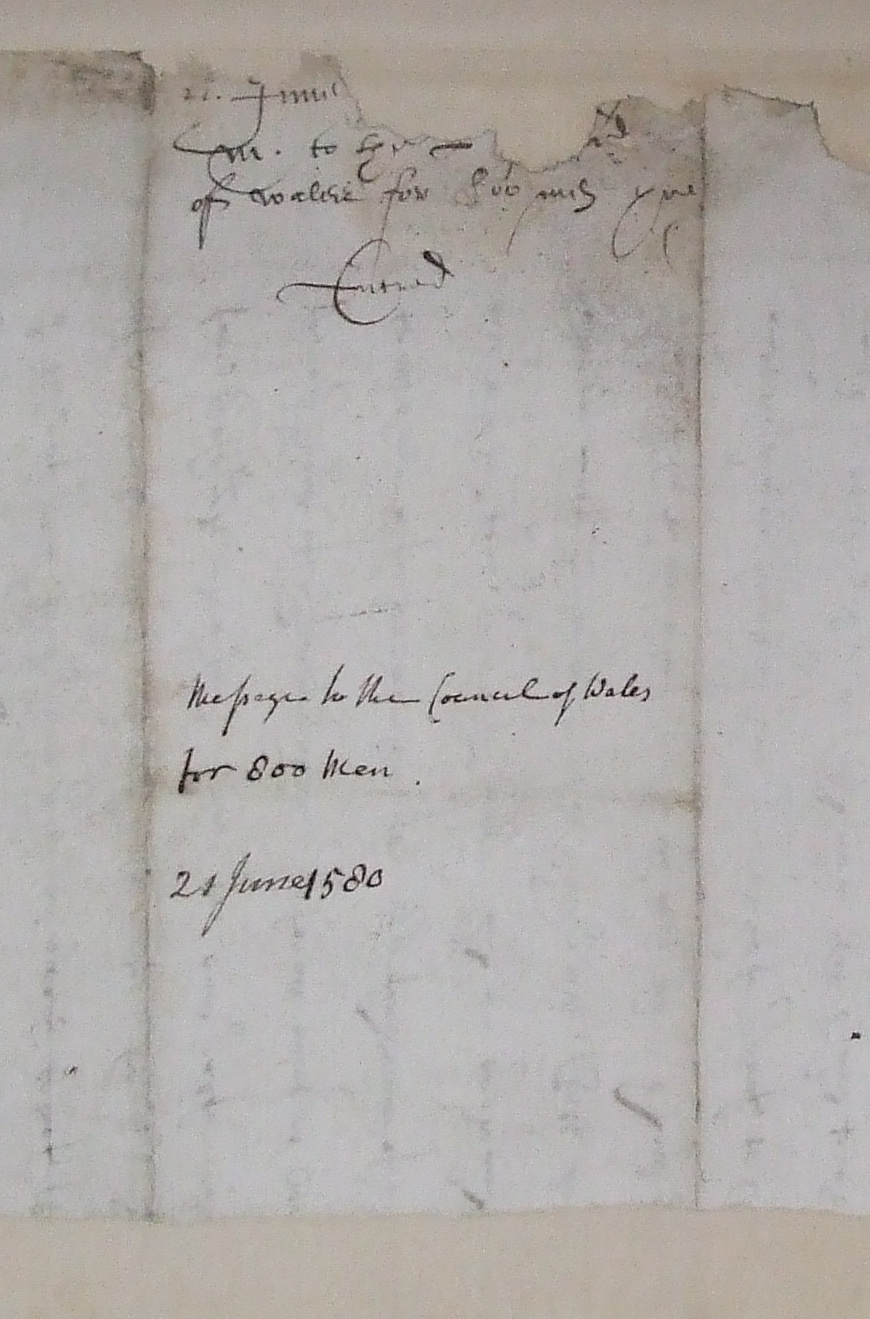 21. Junii
M. to the
of Wales for 800 men
Entred
Message to the Council of Wales
for 800 Men.
21 June 1580